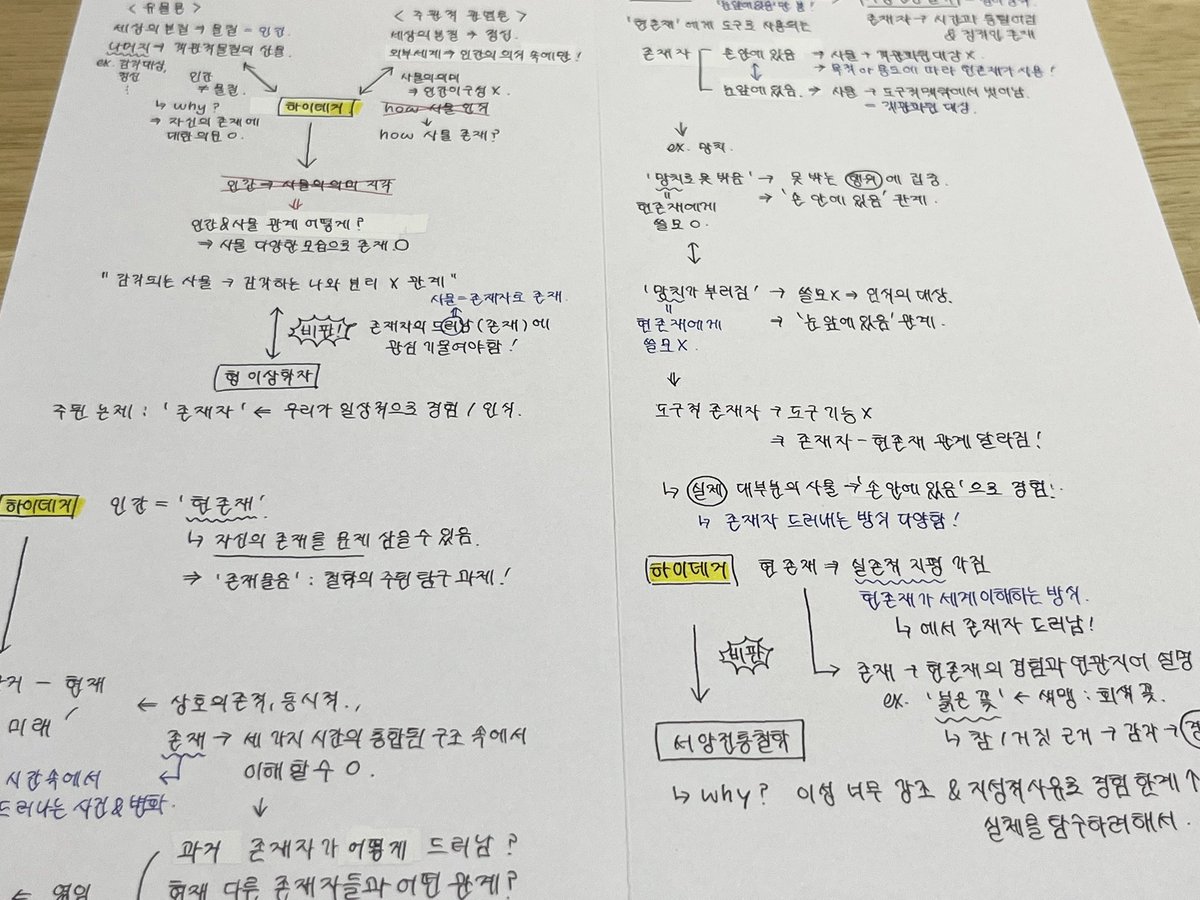 < 유물론 >
세상의 본질 → 물질 = 인간.
나머지 → 객관적 물질의 산물.
ex. 감각 대상,
정신
인간
≠ 물질.
↳ why?
⇒ 자신의 존재에
대한 의문 O.
< 주관적 관념론 >
세상의 본질 → 정신.
외부세계 → 인간의 의식 속에만!
사물의 의미
→ 인간이 구성 X.
하이데거
how 사물 인식
↓
how 사물 존재?
인간 → 사물의 의미 지각
⇓
인간&사물 관계 어떻게?
⇒ 사물 다양한 모습으로 존재. O
" 감각되는 사물 → 감각하는 나와 분리 X 관계 "
사물 = 존재자로 존재.
비판!
존재자의 드러남(존재)에
관심 기울여야함!
형이상학자
주된 논제 : '존재자' ← 우리가 일상적으로 경험 / 인식.
하이데거 인간 = '현존재'.
↳ 자신의 존재를 문제 삼을 수 있음.
⇒ '존재물음' : 철학의 주된 탐구 과제!
— 현재
미래
← 상호의존적, 동시적.,
존재 → 세 가지 시간의 통합된 구조 속에서
이해할 수 O.
시간속에서
드러나는 사건&변화.
↓
과거 존재자가 어떻게 드러남?
현재 다른 존재자들과 어떤 관계?
'현존재'에게 도구로 사용되는
존재자 → 시간과
& 존재
존재자 손안에 있음 → 사물 → 객관화된 대상 X.
→ 목적이 용도에 따라 현존재가 사용!
눈앞에 있음. → 사물 → 도구적 맥락에서 벗어남.
= 객관화된 대상.
↓
ex. 망치.
'망치로 못 박음' → 못 박는 행위에 집중.
= 현존재에게 → '손 안에 있음' 관계.
쓸모 O.
↕
'망치가 부러짐' → 쓸모X ⇒ 인식의 대상.
= 현존재에게 → '눈 앞에 있음' 관계.
쓸모 X.
⇓
도구적 존재자 → 도구 기능 X
⇒ 존재자 – 현존재 관계 달라짐!
↳ 실제 대부분의 사물 → '손 안에 있음'으로 경험!
↳ 존재자 드러내는 방식 다양함!
하이데거 현존재 ⇒ 실존적 지평 가짐
현존재가 세계 이해하는 방식.
↳ 에서 존재자 드러남!
비판
존재 → 현존재의 경험과 연관지어 설명
ex. '붉은 꽃' ← 색맹 : 회색 꽃.
↳ 참 / 거짓 근거 → 감각 →
서양전통철학
↳ why? 이성 너무 강조 & 지성적 사유로 경험 한계 ↑
실체를 탐구하려해서.